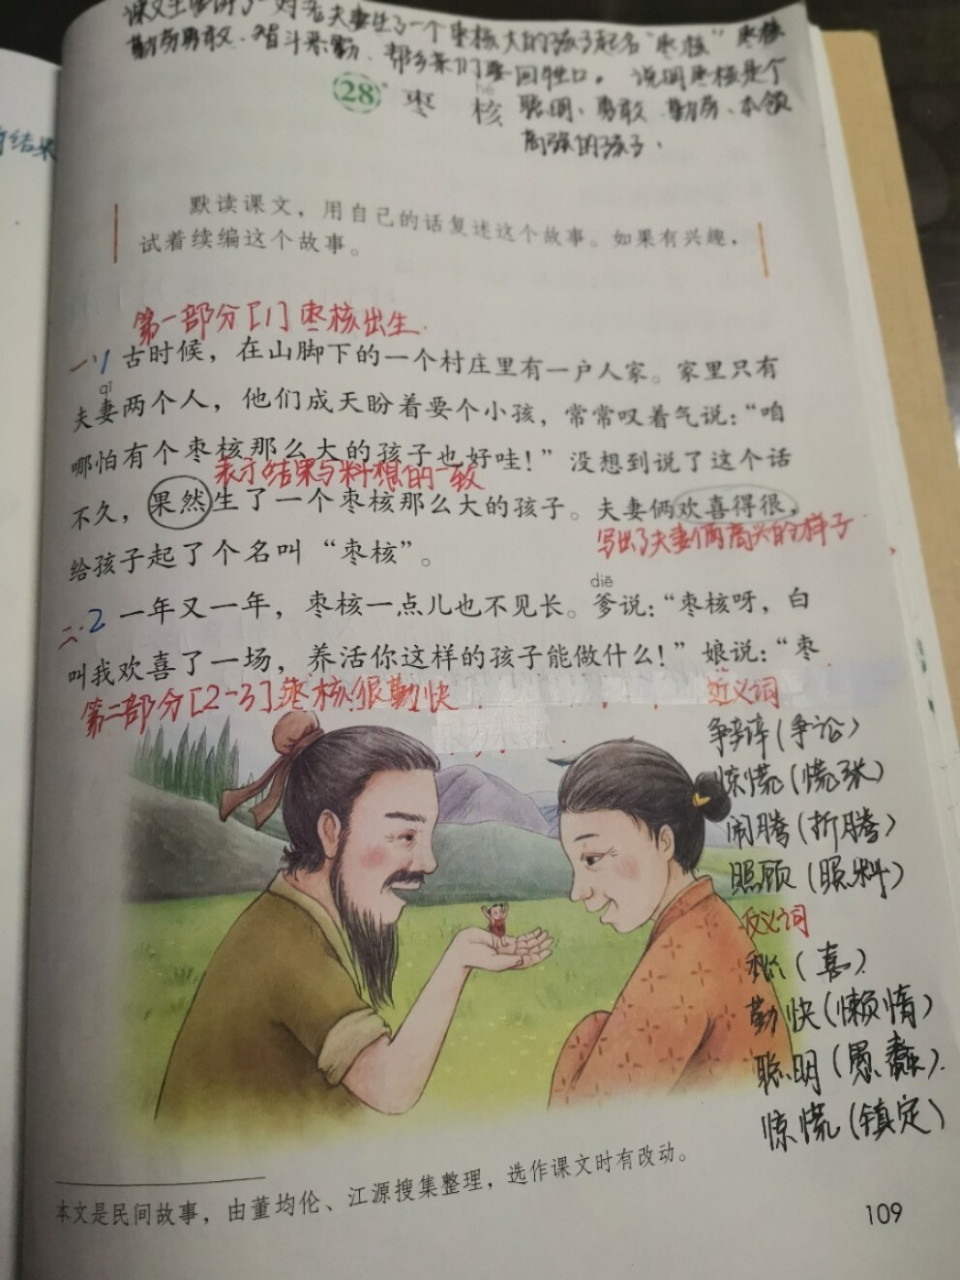 课文主要讲了一对老夫妻生了一个枣核大的孩子起名“枣核”枣核
勤劳勇敢、智斗恶勤、帮乡亲们要回牲口。说明枣核是个
聪明、勇敢、勤劳、本领
高强的孩子。
hé
28 枣核
结果
默读课文，用自己的话复述这个故事。如果有兴趣，
试着续编这个故事。
第一部分[1]枣核出生.
一、1 古时候，在山脚下的一个村庄里有一户人家。家里只有
qī
夫妻两个人，他们成天盼着要个小孩，常常叹着气说：“咱
哪怕有个枣核那么大的孩子也好哇！”没想到说了这个话
表示结果与料想的一致
不久，果然生了一个枣核那么大的孩子。夫妻俩欢喜得很，
写出了夫妻俩高兴的样子
给孩子起了个名叫“枣核”。
diē
二.2 一年又一年，枣核一点儿也不见长。爹说：“枣核呀，白
叫我欢喜了一场，养活你这样的孩子能做什么！”娘说：“枣
第二部分[2-3]枣核很勤快
近义词
争辩（争论）
惊慌（慌张）
闹腾（折腾）
照顾（照料）
反义词
愁（喜）
勤快（懒惰）
聪明（愚蠢）.
惊慌（镇定）
本文是民间故事，由董均伦、江源搜集整理，选作课文时有改动。
109